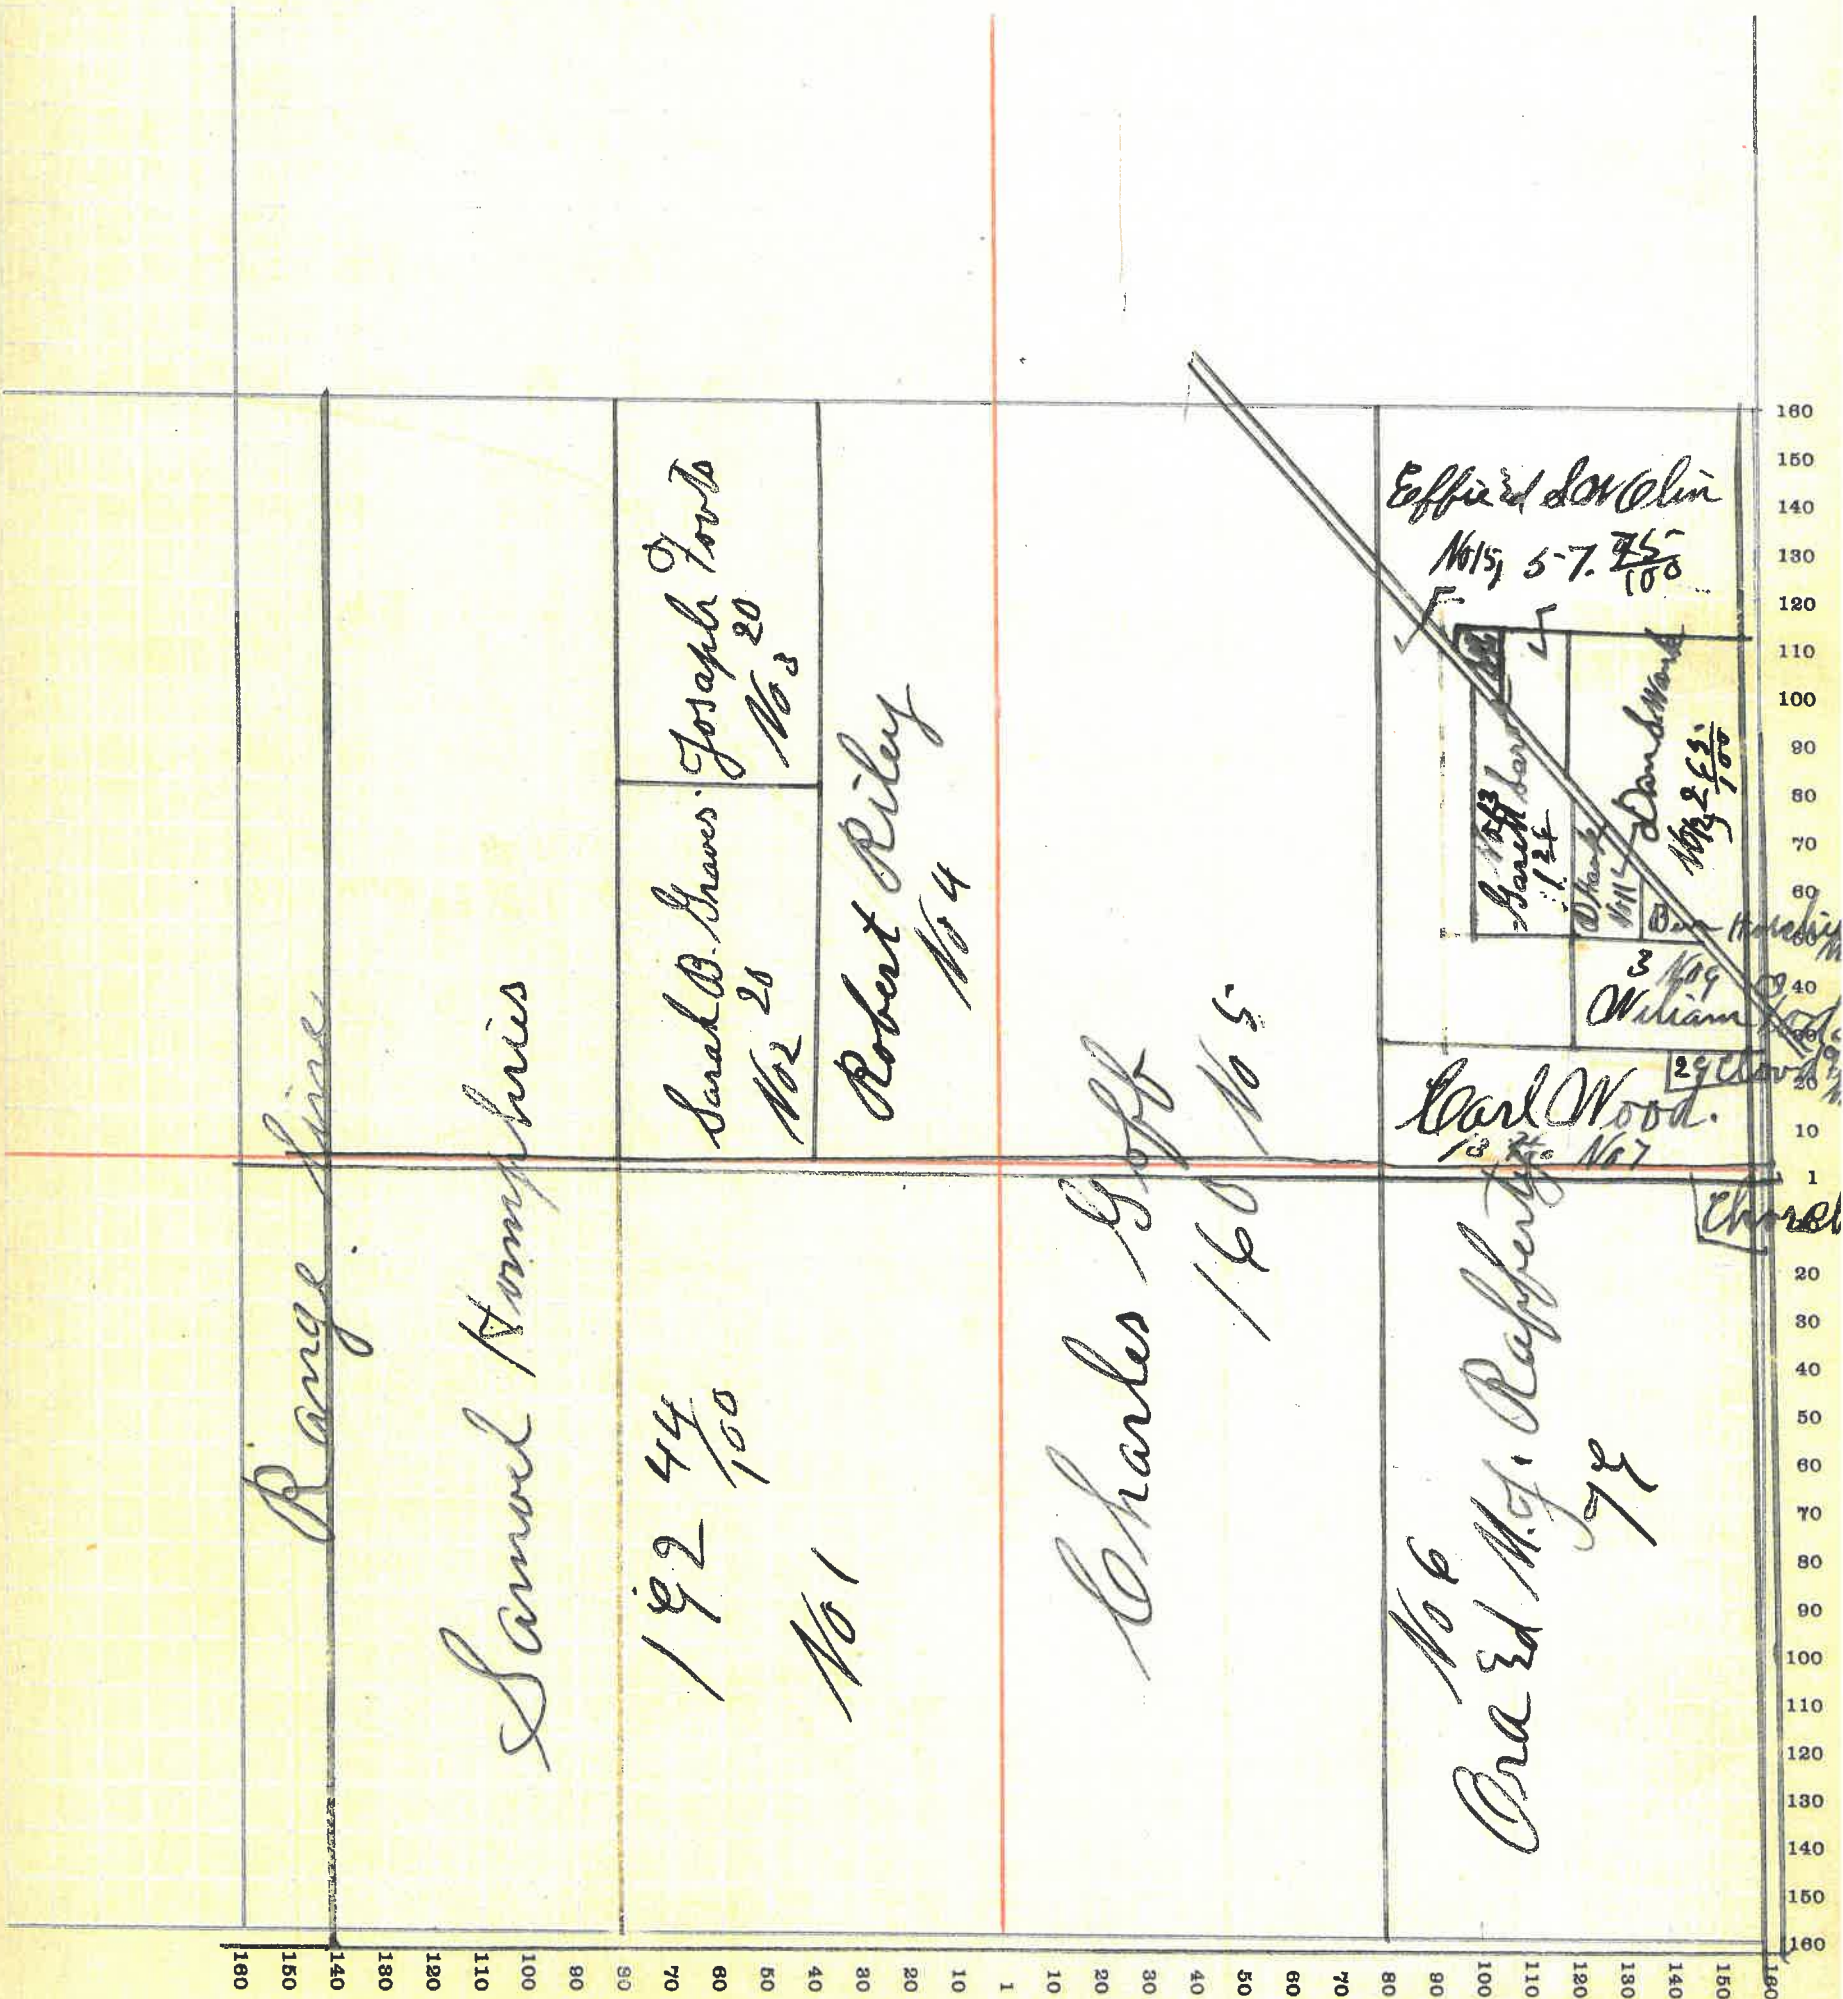 Range Line
Samuel Homphries
192 44/100
No 1
Sarah B. Graves
No 2 20
Josaph Fovts
No 3 20
Robert Riley
No 4
Charles Goff
160 No 5
No 6
Ora Ed M. J. Rafferty
79
Carl Wood.
No 7
Effie Ed
Olin
No 15, 57. 75/100
No 13
No 11
No 9
William
Church
160
150
140
130
120
110
100
90
80
70
60
50
40
30
20
10
1
20
30
40
50
60
70
80
90
100
110
120
130
140
150
160
160
150
140
130
120
110
100
90
80
70
60
50
40
30
20
10
1
10
20
30
40
50
60
70
80
90
100
110
120
130
140
150
160